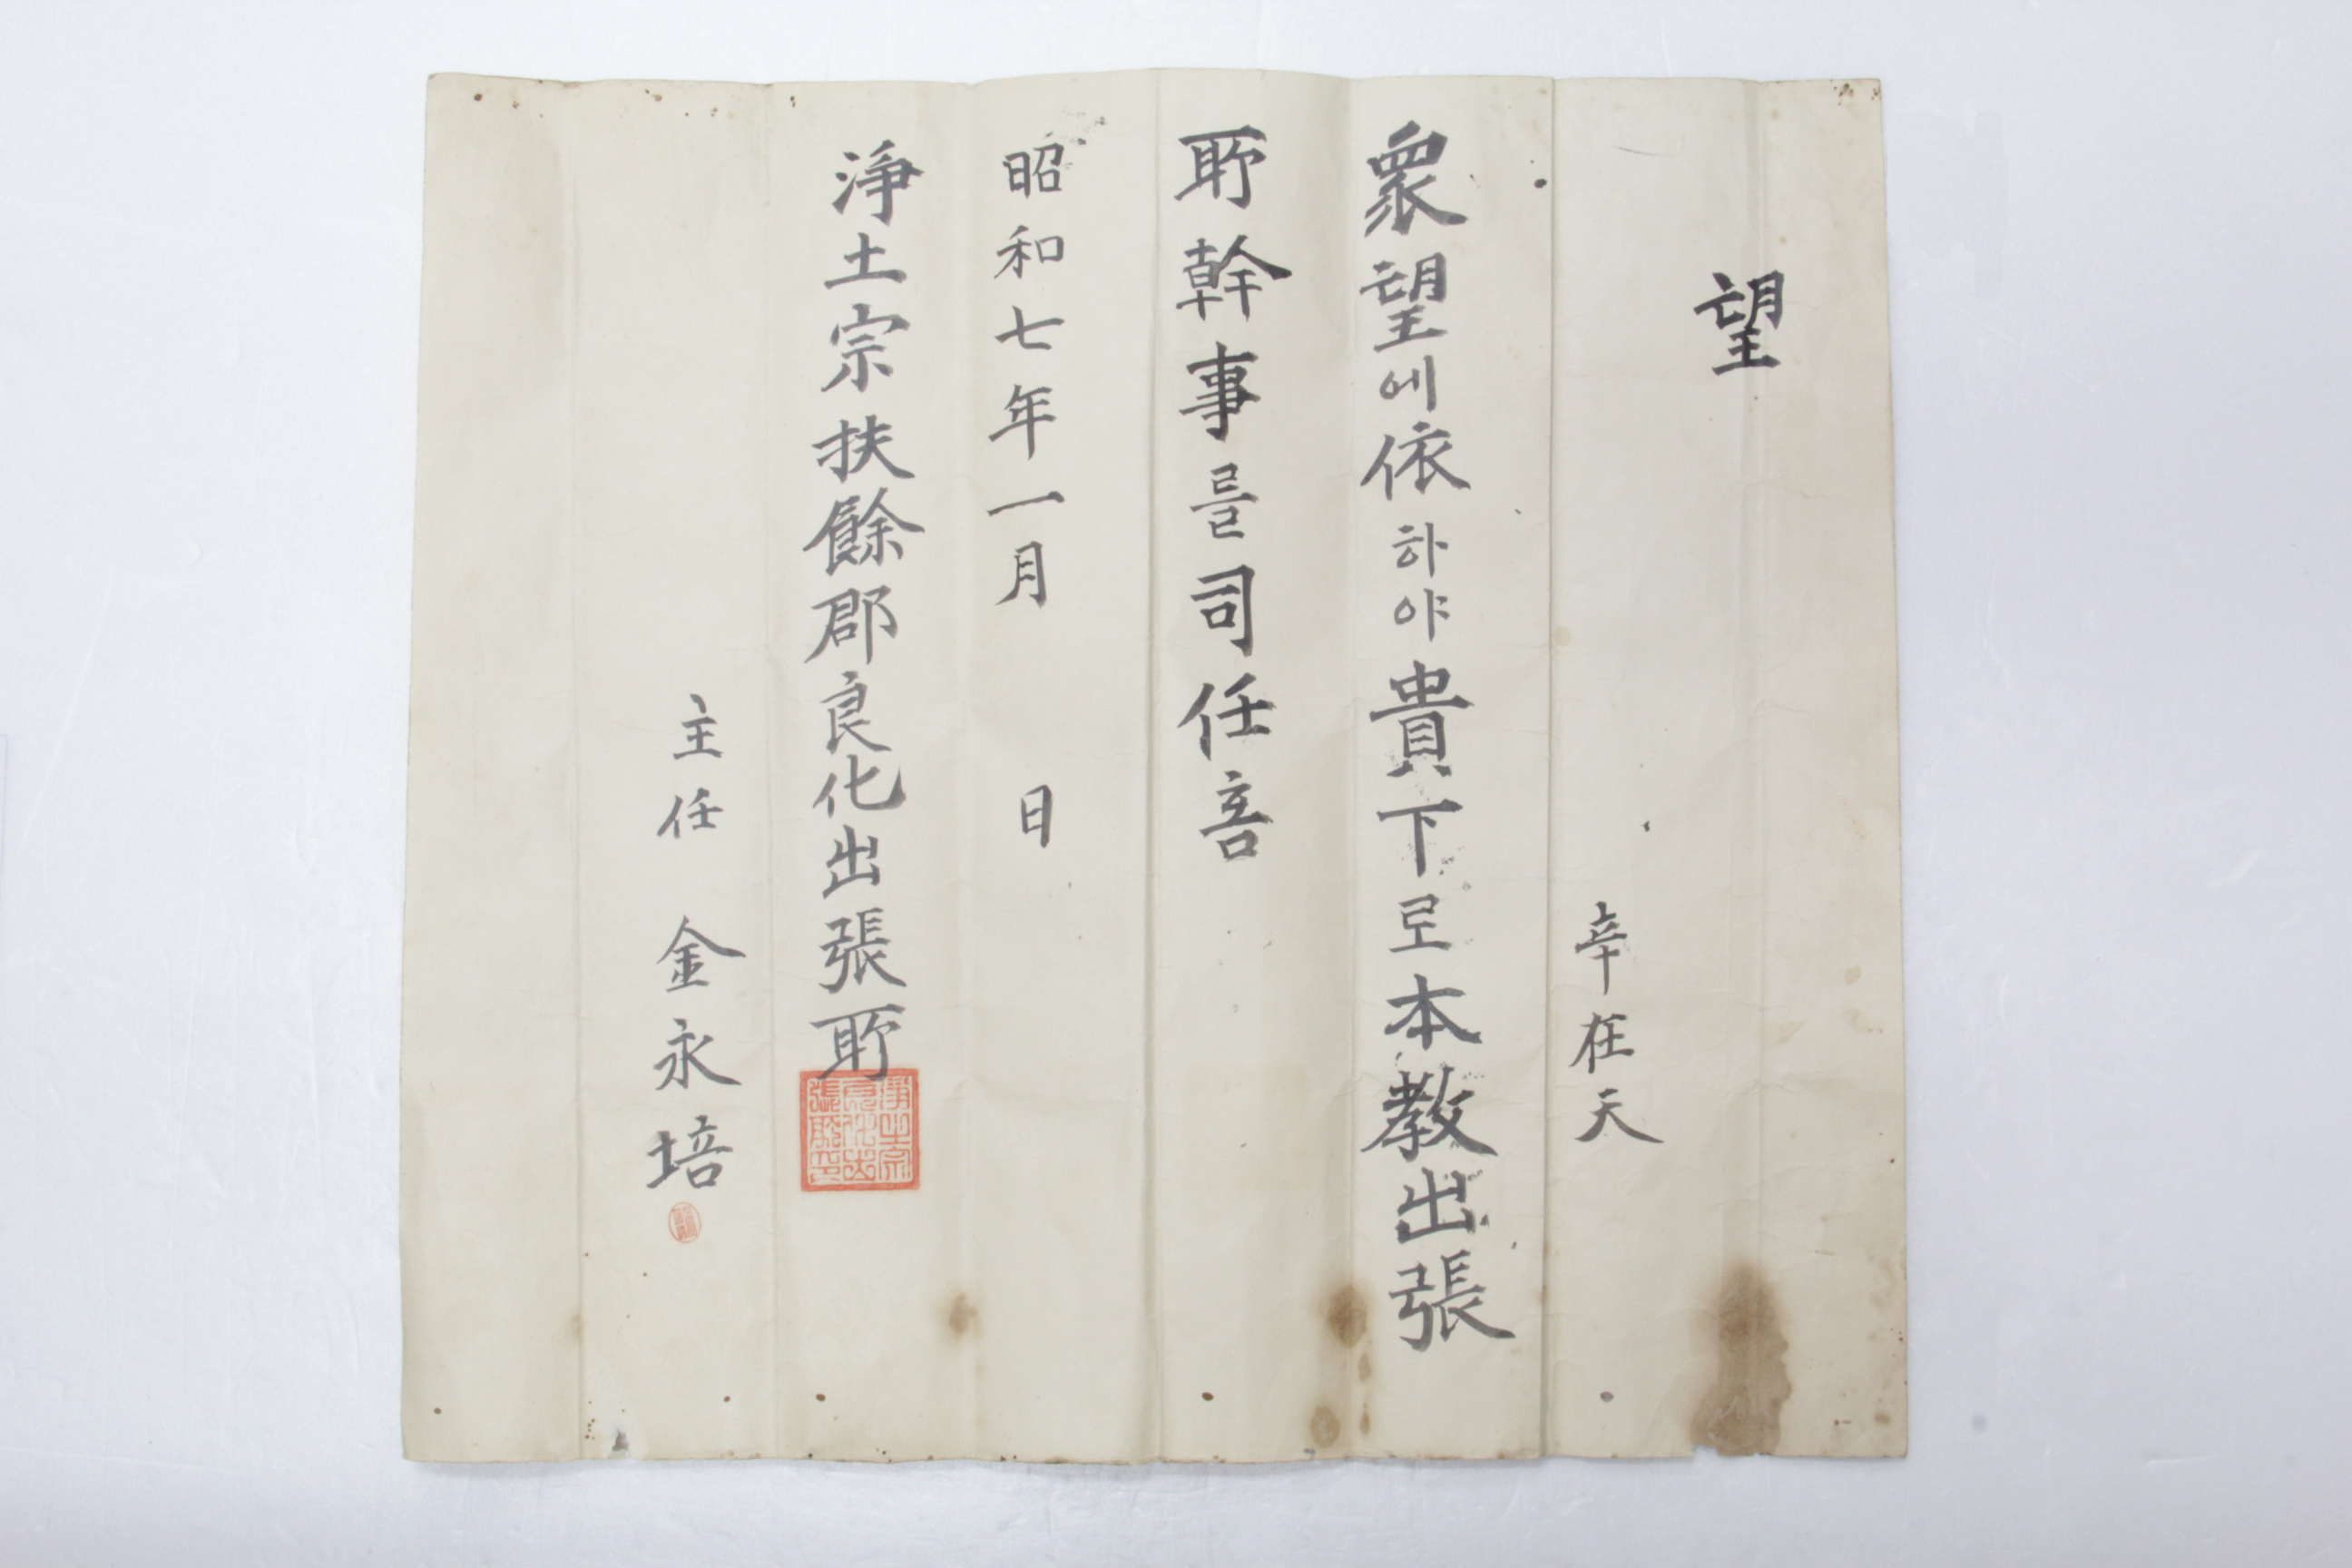 望
辛在天
衆望에依하야貴下로本教出張
所幹事를司任홈
昭和七年一月 日
淨土宗扶餘郡良化出張所
主任 金永培
淨土宗良化出張所印